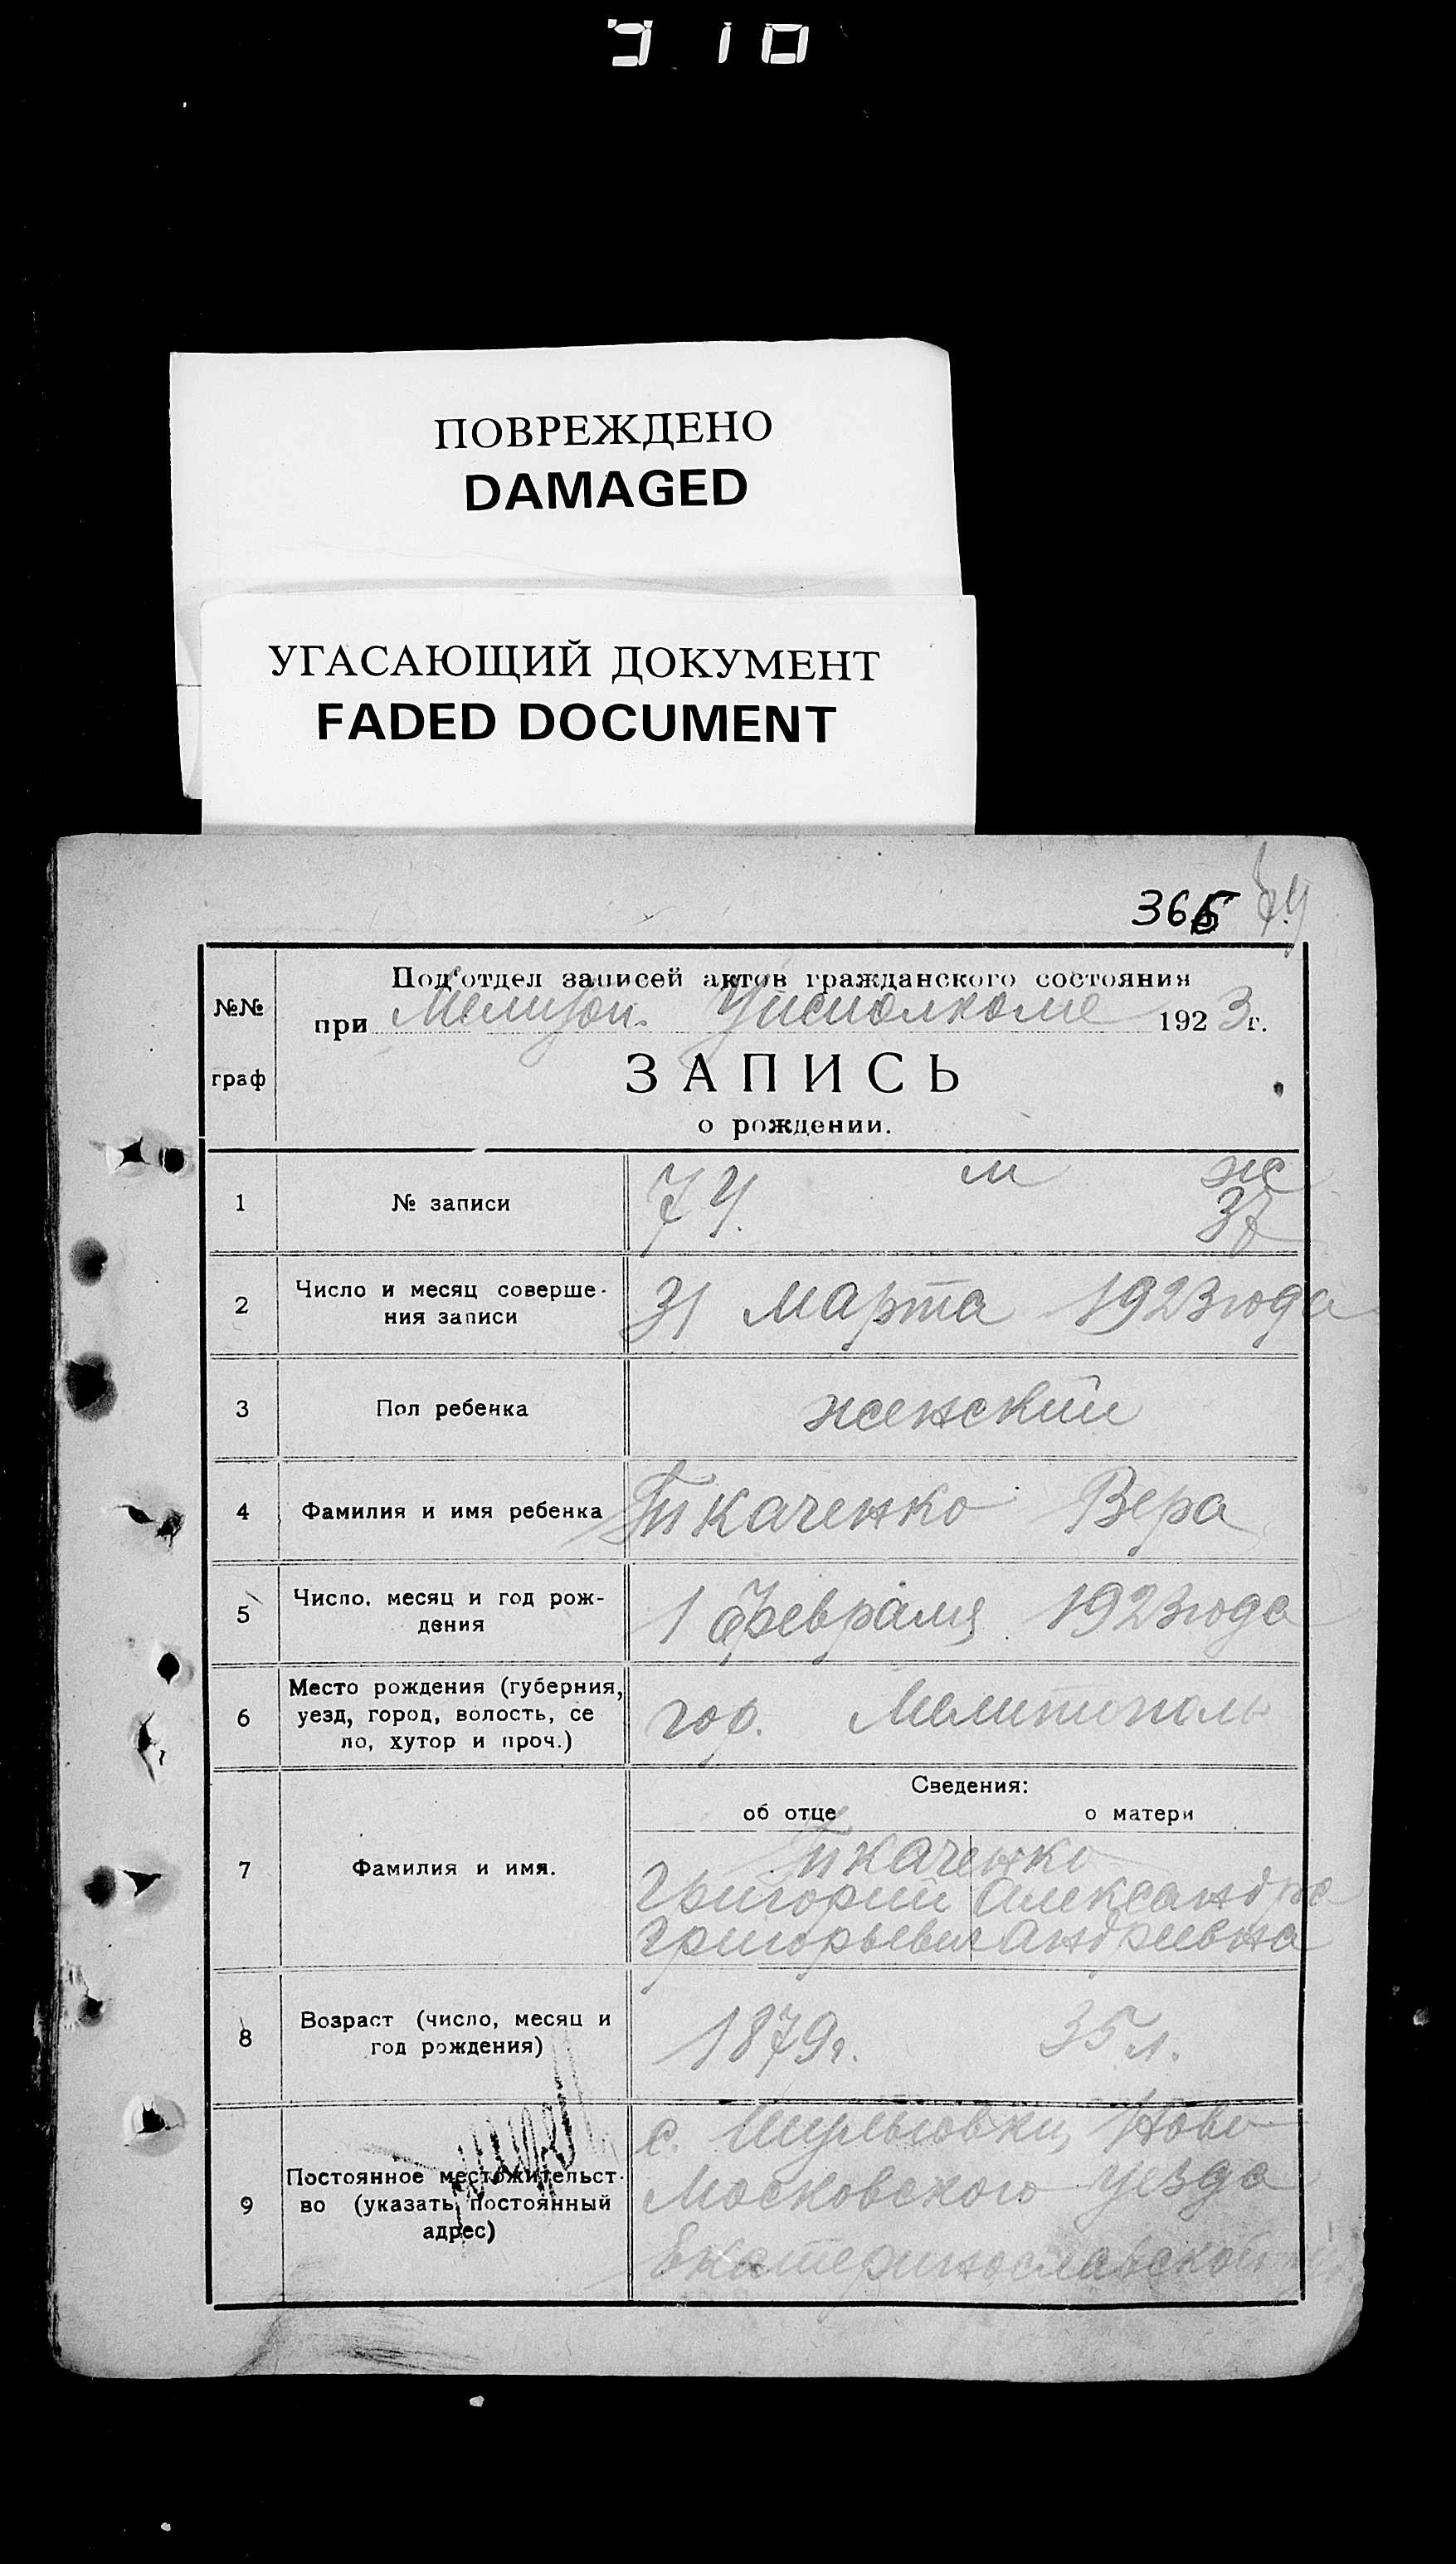 310
ПОВРЕЖДЕНО
DAMAGED
УГАСАЮЩИЙ ДОКУМЕНТ
FADED DOCUMENT
74
№№
граф
Под'отдел записей актов гражданского состояния
при 1923г.
ЗАПИСЬ
о рождении.
м ж
1 № записи 74. 37
2 Число и месяц соверше-
ния записи 31 Марта 1923 года
3 Пол ребенка женский
4 Фамилия и имя ребенка Ткаченко Вера
5 Число, месяц и год рож-
дения 1 февраля 1923 года
Место рождения (губерния,
6 уезд, город, волость, се
ло, хутор и проч.) гор. Мелитополь
Сведения:
об отце о матери
7 Фамилия и имя. Ткаченко
Григорий Александра
Григорьевич Андреевна
8 Возраст (число, месяц и
год рождения) 1879г. 35 л.
с. Ново
9 Постоянное местожительст-
во (указать постоянный
адрес) Московского уезда
Екатеринославской